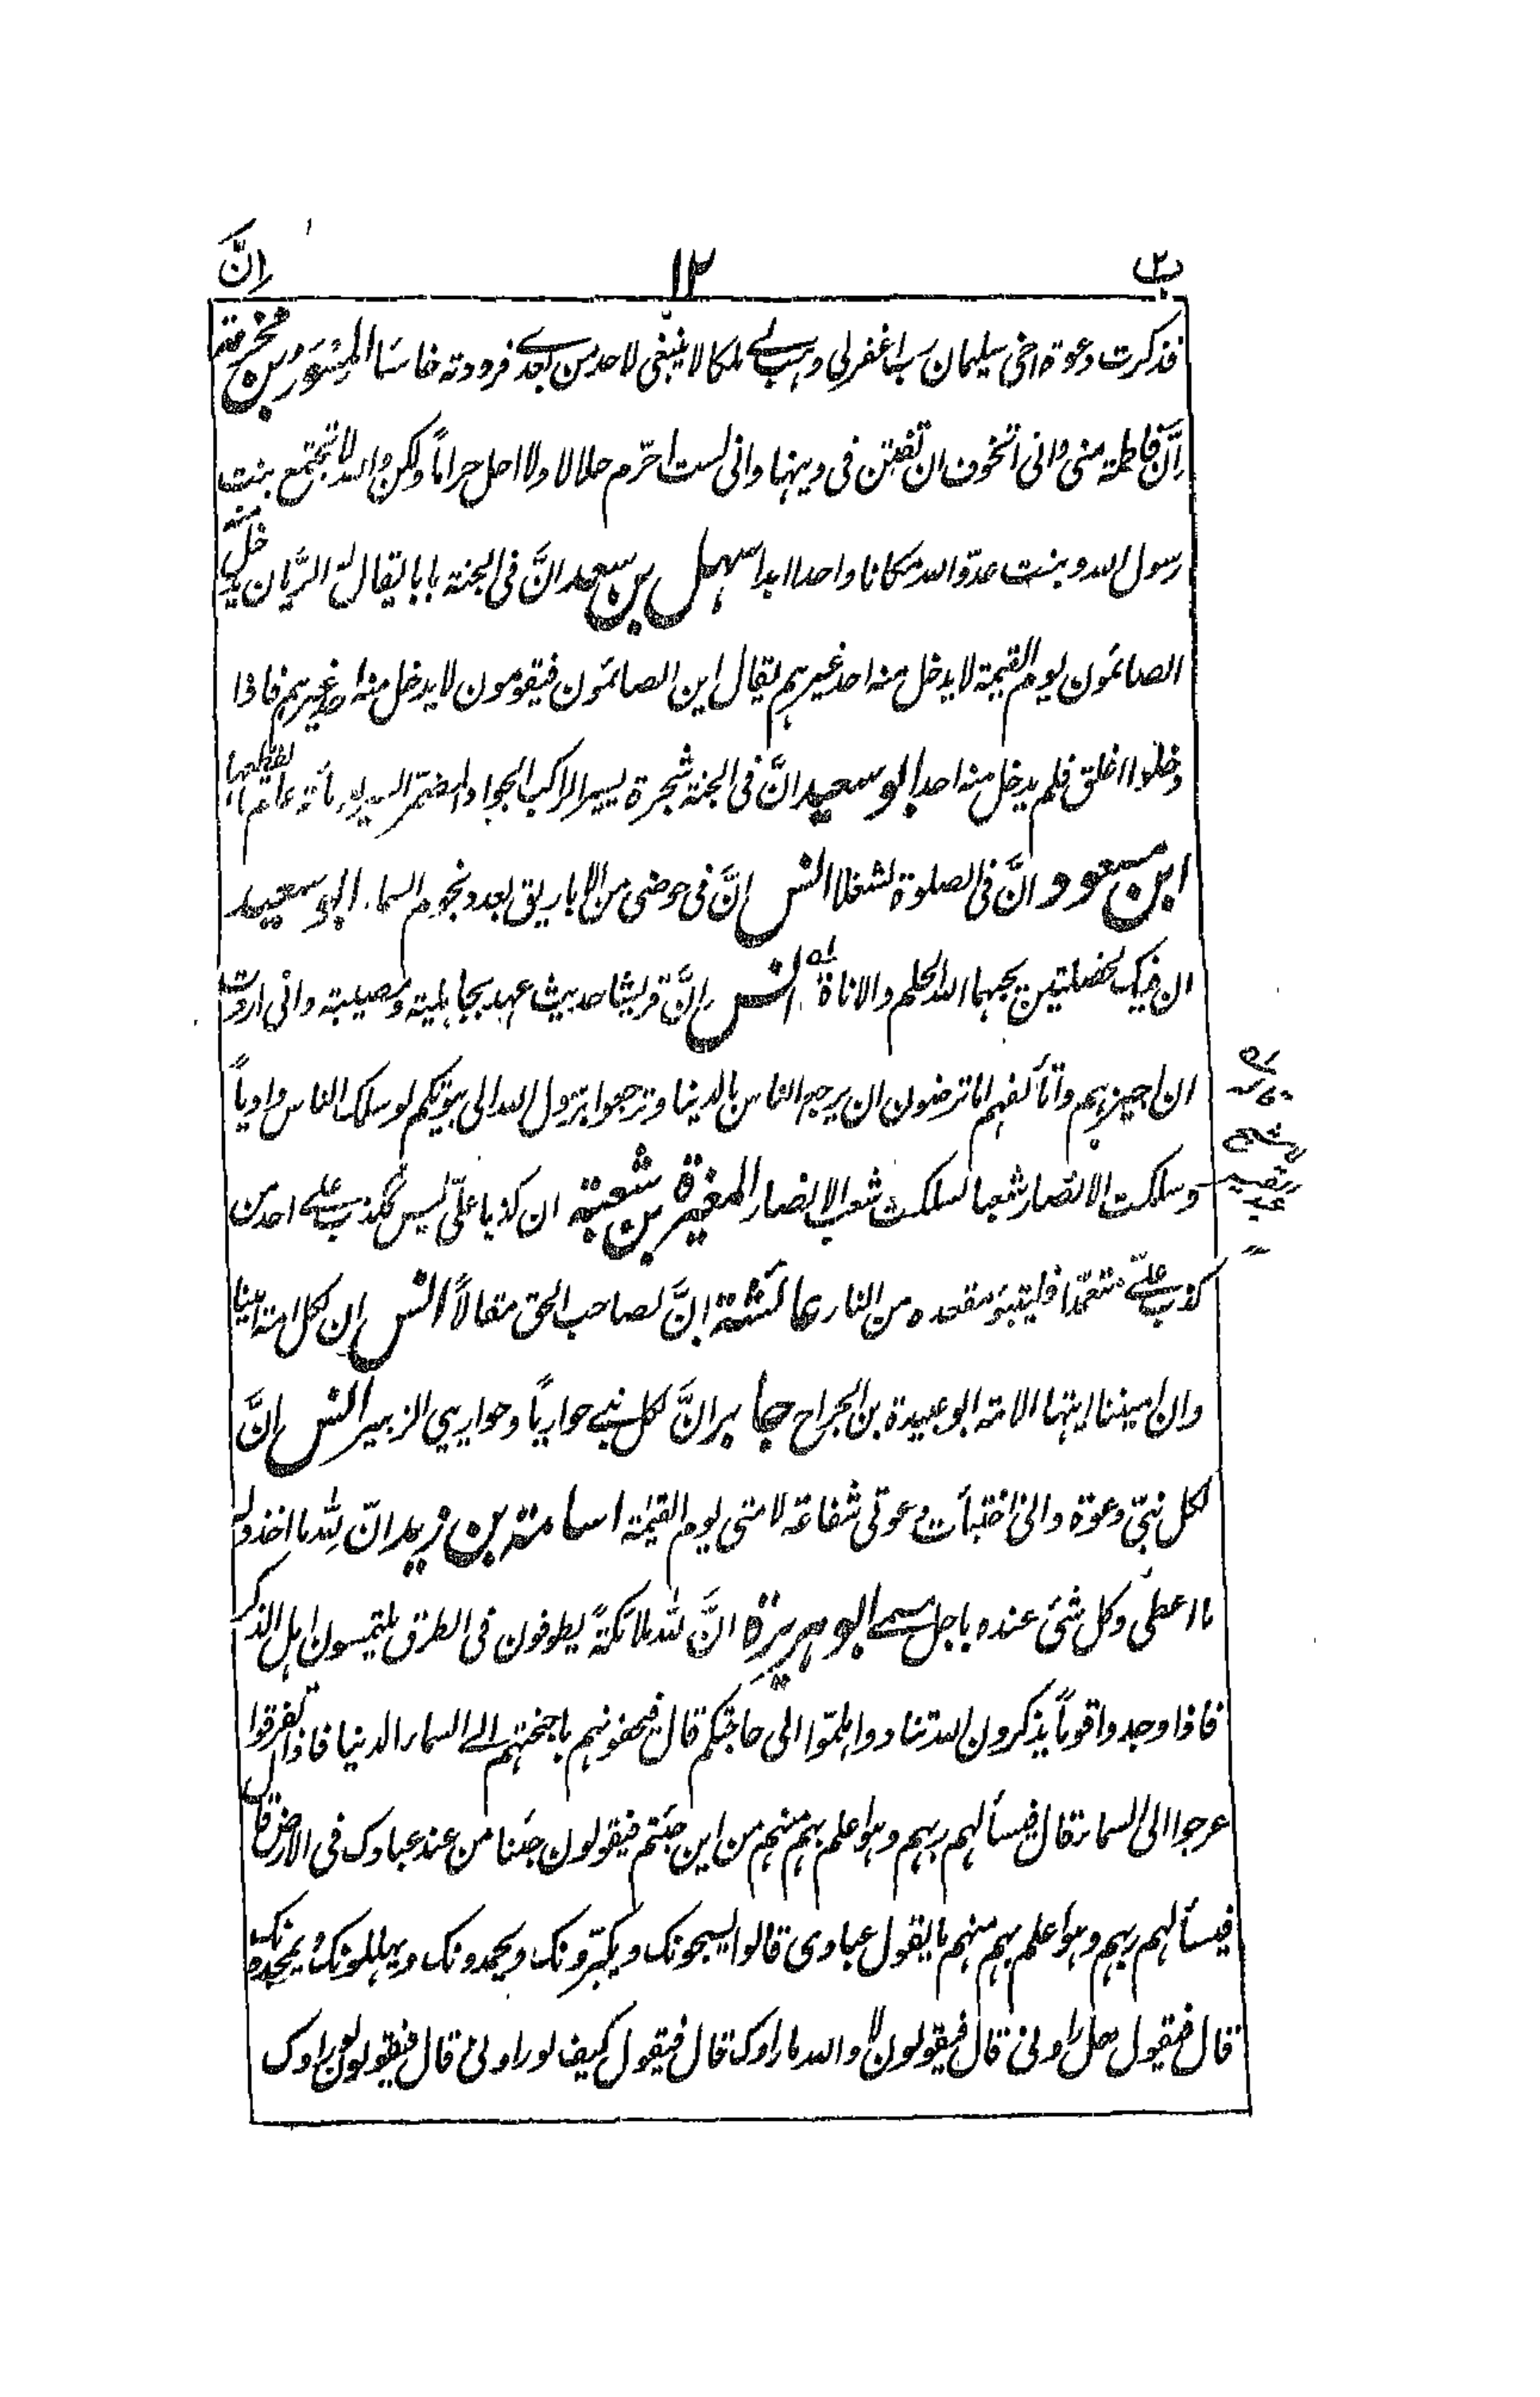 ب٢ ١٣ اِنَّ
فذكرت دعوة اخى سليمان رب اغفرلى وهب لى ملكا لا ينبغى لاحد من بعدى فرددته خاسئا المِسْوَرُ بن مخرمة
اِنَّ فاطمة منى وانى اتخوف ان تفتن فى دينها وانى لست احرّم حلالا ولا احل حراماً ولكن والله لا تجتمع بنت
رسول الله وبنت عدو الله مكانا واحدا ابدا سهل بن سعد انَّ فى الجنة بابا يقال له الريّان يدخل منه
الصائمون يوم القيمة لا يدخل منه احد غيرهم يقال اين الصائمون فيقومون لا يدخل منه احد غيرهم فاذا
دخلوا اغلق فلم يدخل منه احد ابو سعيد انَّ فى الجنة شجرة يسير الراكب الجواد المضمّر السريع مأتة عام ما يقطعها
ابن مسعود انَّ فى الصلوة لشغلا انس انَّ فى حوضى من الاباريق بعدد نجوم السماء ابو سعيد
ان فيك لخصلتين يحبهما الله الحلم والاناة انس اِنَّ قريشا حديث عهد بجاهلية ومصيبة وانى اردت
ان اجيزهم واتألفهم اما ترضون ان يرجع الناس بالدنيا وترجعوا برسول الله الى بيوتكم لو سلك الناس وادياً
وسلكت الانصار شعبا لسلكت شعب الانصار المغيرة بن شعبة ان كذبا علىّ ليس ككذب على احد من
كذب علىّ متعمّدا فليتبوّء مقعده من النار عائشة اِنَّ لصاحب الحق مقالاً انس اِن لكل امة امينا
وان اميننا ايتها الامة ابو عبيدة بن الجراح جابر انَّ لكل نبى حوارياً وحواريى الزبير انس اِنَّ
لكل نبىّ دعوة وانى اختبأت دعوتى شفاعة لامتى يوم القيمة اسامة بن زيد انّ لِلّٰه ما اخذ وله
ما اعطى وكل شئ عنده باجل مسمى ابو هريرة انَّ لله ملائكةً يطوفون فى الطرق يلتمسون اهل الذكر
فاذا وجدوا قوماً يذكرون الله تنادوا هلمّوا الى حاجتكم قال فيحفونهم باجنحتهم الى السماء الدنيا فاذا تفرقوا
عرجوا الى السماء قال فيسألهم ربهم وهو اعلم بهم منهم من اين جئتم فيقولون جئنا من عند عبادك فى الارض قال
فيسألهم ربهم وهو اعلم بهم منهم ما يقول عبادى قالوا يسبحونك ويكبّرونك ويحمدونك ويهللونك ويمجدونك
قال فيقول هل راونى قال فيقولون لا والله ما راوك قال فيقول كيف لو راونى قال فيقولون لو راوك